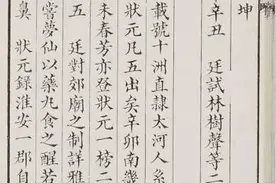 坤
辛丑 廷試林樹聲等二
載號十洲直隸太河人系
狀元凡五出矣辛卯南畿
未春芳亦登狀元一榜二
五 廷對郊廟之制詳雅
嘗夢仙以藥丸食之醒若
臯 狀元錄淮安一郡自